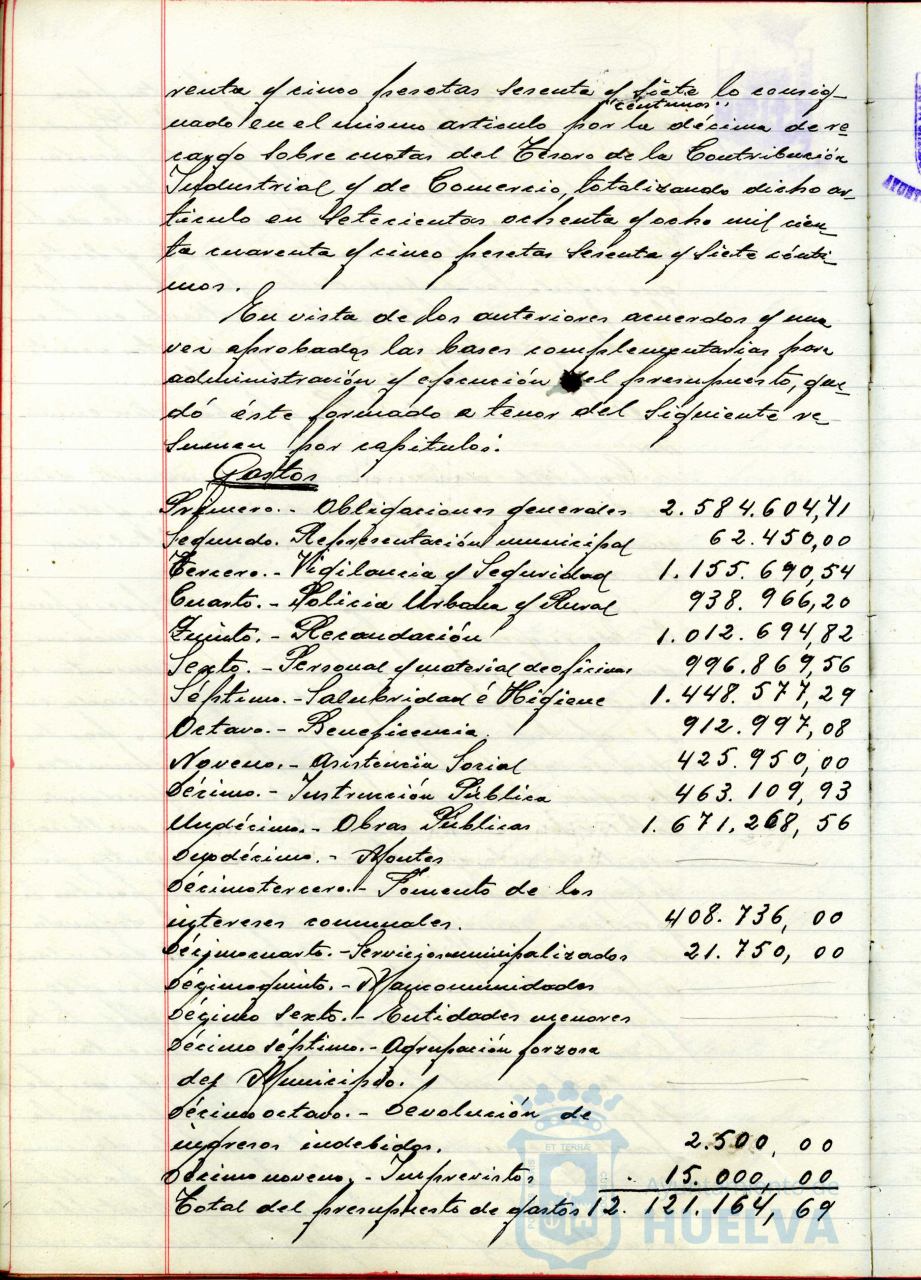 renta y cinco pesetas sesenta y siete lo consig-
centimos
nado en el mismo articulo por la décima de re-
cargo sobre cuotas del Tesoro de la Contribución
Industrial y de Comercio, totalizando dicho ar-
ticulo en setecientas ochenta y ocho mil cien-
ta cuarenta y cinco pesetas sesenta y siete cénti-
mos.
En vista de los anteriores acuerdos y una
vez aprobadas las bases complementarias para
administración y ejecución del presupuesto, que-
dó éste formado a tenor del siguiente re-
sumen por capitulos:
Gastos
Primero.- Obligaciones generales 2.584.604,71
Segundo. Representación municipal 62.450,00
Tercero.- Vigilancia y Seguridad 1.155.690,54
Cuarto.- Policia Urbana y Rural 938.966,20
Quinto.- Recaudación 1.012.694,82
Sexto.- Personal y material de oficinas 996.869,56
Séptimo.- Salubridad é Higiene 1.448.577,29
Octavo.- Beneficencia. 912.997,08
Noveno.- Asistencia Social 425.950,00
Décimo.- Instrucción Pública 463.109,93
Undécimo.- Obras Públicas 1.671.268,56
Duodécimo.- Montes
Décimotercero.- Fomento de los
intereses comunales. 408.736,00
Décimocuarto.- Servicios municipalizados 21.750,00
Décimoquinto.- Mancomunidades
Décimo sexto.- Entidades menores
Décimo séptimo.- Agrupación forzosa
del Municipio.
Décimo octavo.- Devolución de
ingresos indebidos. 2.500,00
Décimo noveno.- Imprevistos 15.000,00
Total del presupuesto de gastos 12.121.164,69
ET TERRÆ
Ayuntamiento de
HUELVA